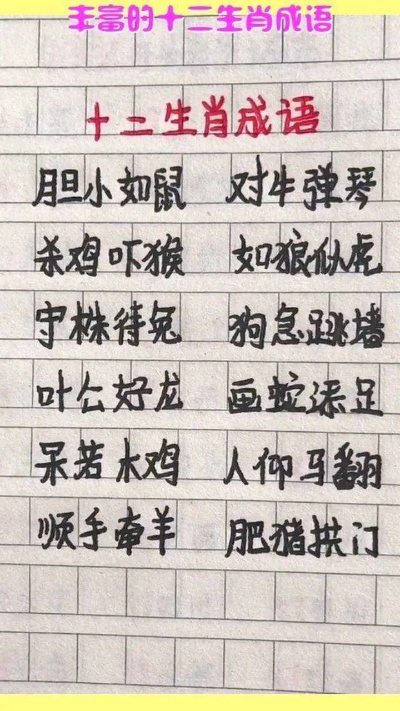 丰富的十二生肖成语
十二生肖成语
胆小如鼠 对牛弹琴
杀鸡吓猴 如狼似虎
守株待兔 狗急跳墙
叶公好龙 画蛇添足
呆若木鸡 人仰马翻
顺手牵羊 肥猪拱门